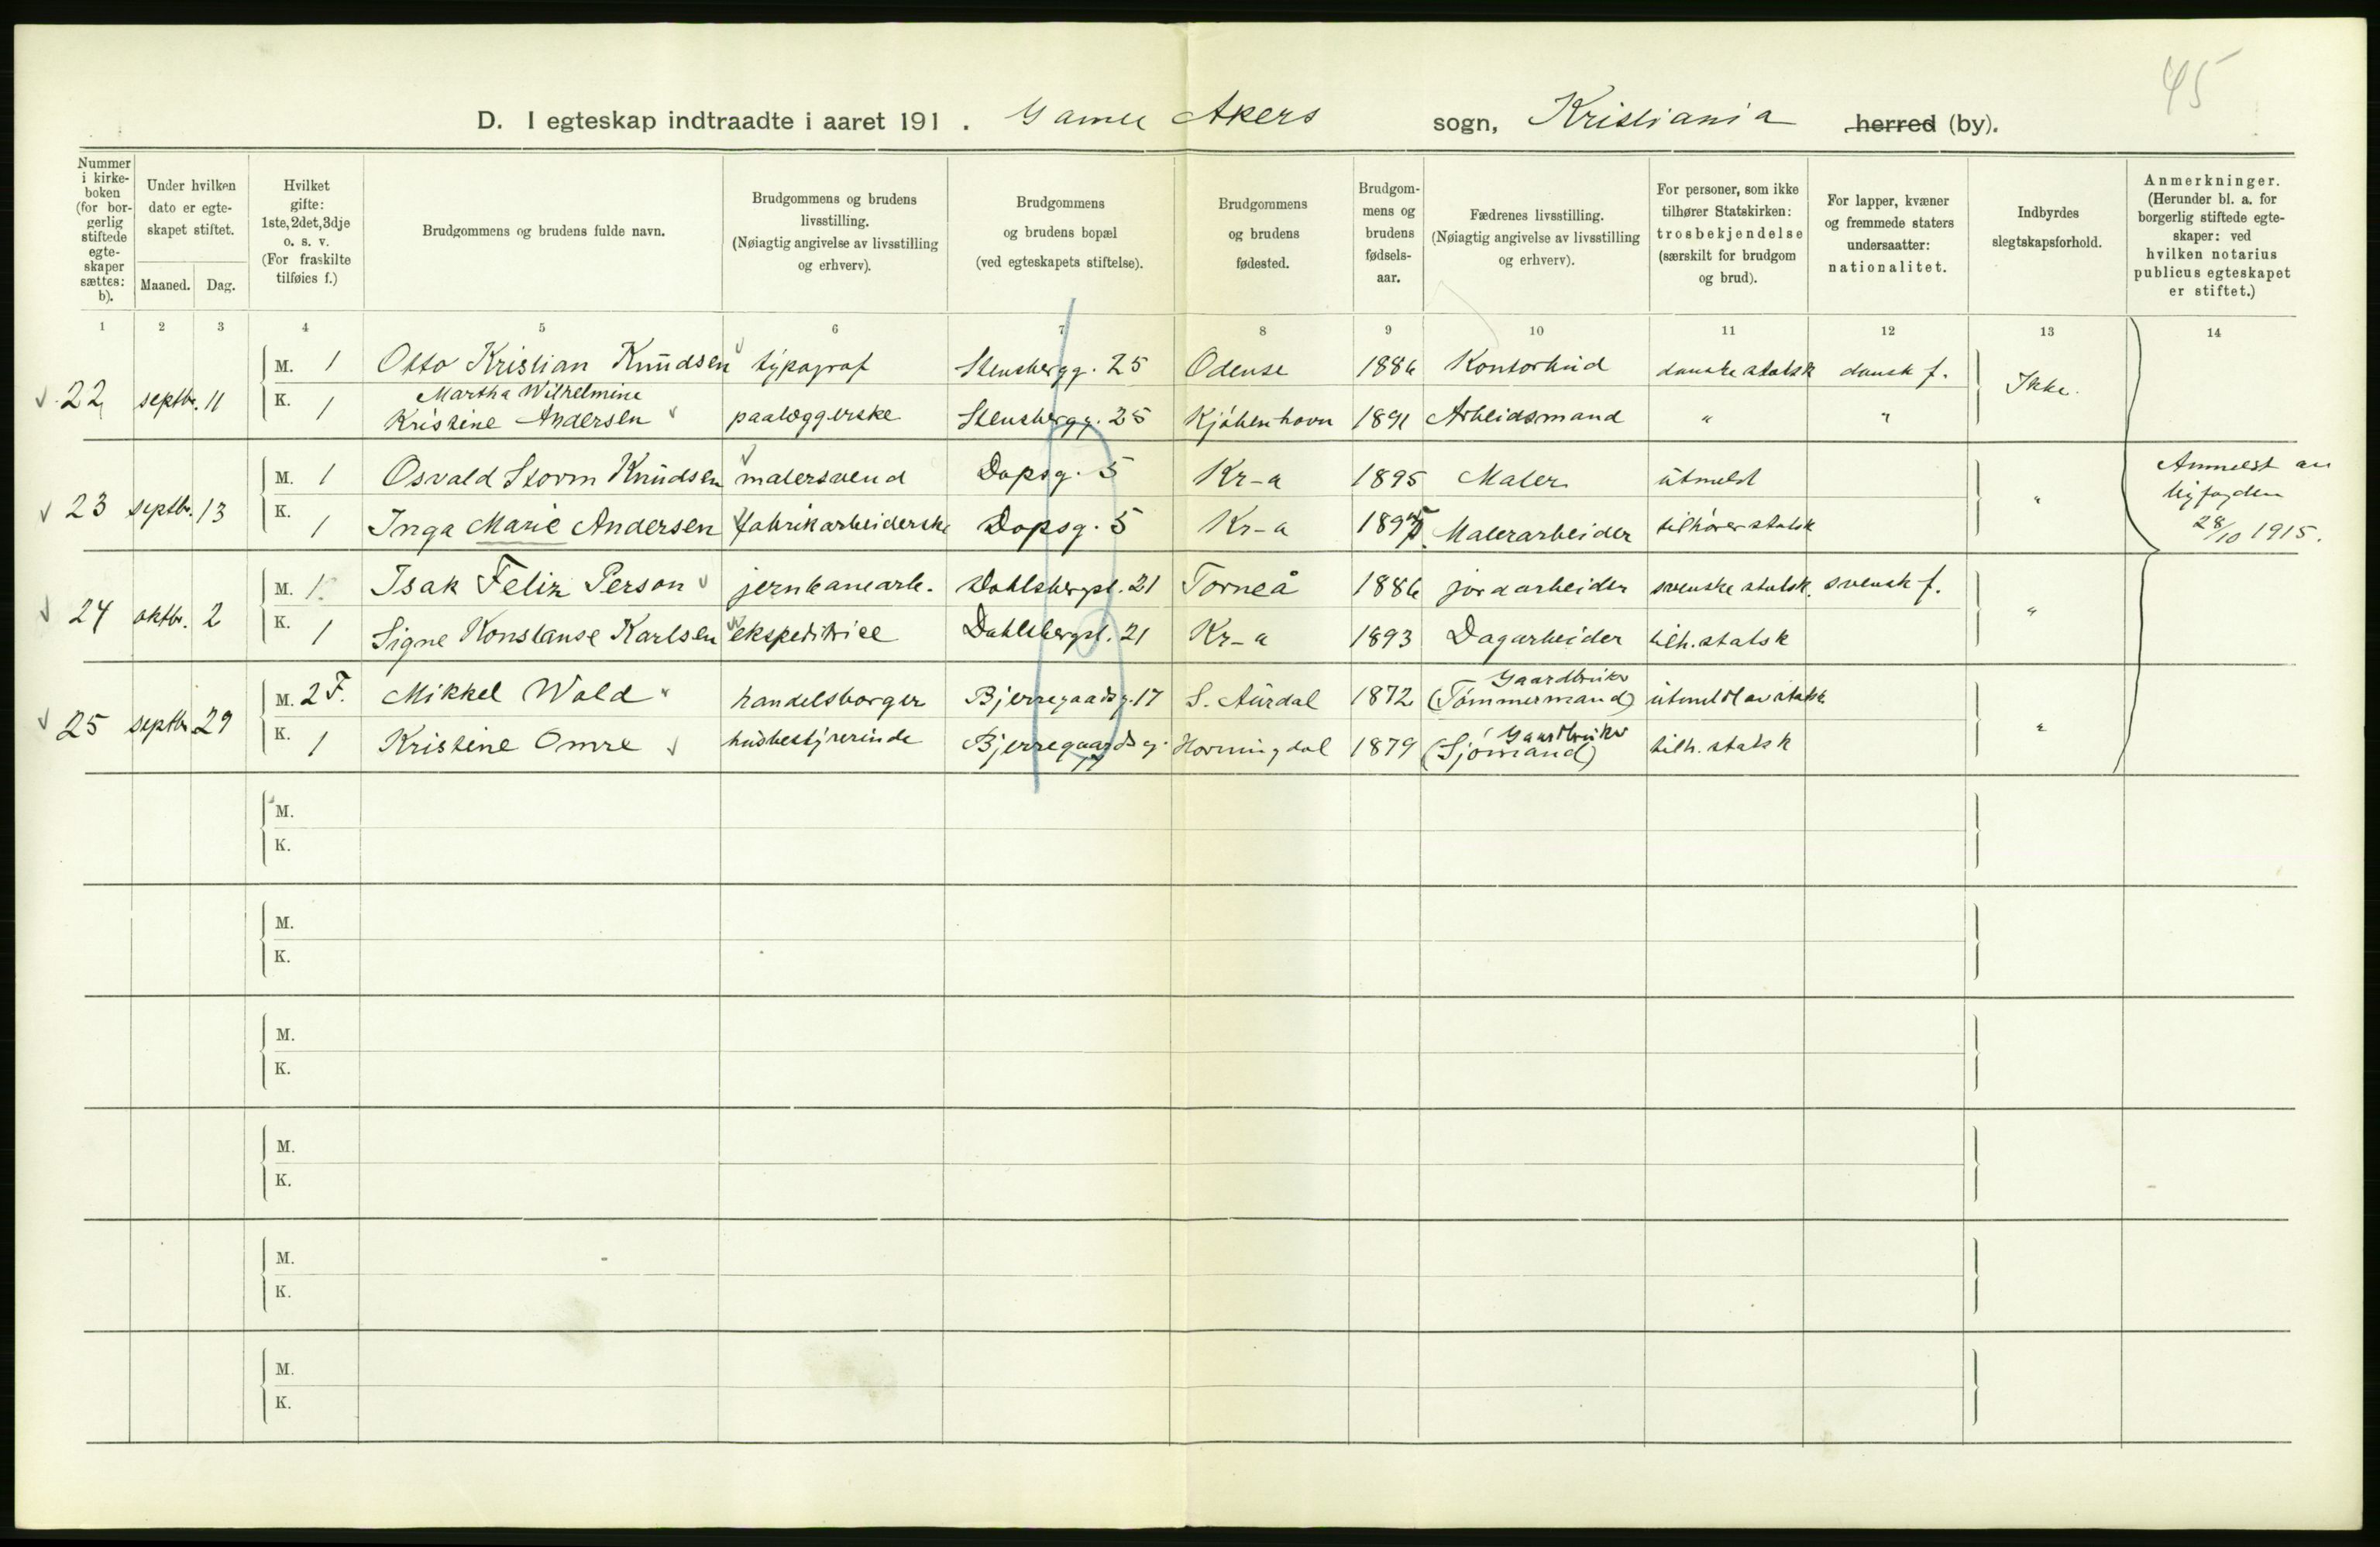 45
D. I egteskap indtraadte i aaret 191 . Gamle Akers sogn, Kristiania herred (by).
Nummer i kirke-boken (for bor-gerlig stiftede egte-skaper sættes: b).
Under hvilken dato er egte-skapet stiftet.
Maaned. Dag.
Hvilket gifte: 1ste, 2det, 3dje o. s. v. (For fraskilte tilføies f.)
Brudgommens og brudens fulde navn.
Brudgommens og brudens livsstilling. (Nøiagtig angivelse av livsstilling og erhverv).
Brudgommens og brudens bopæl (ved egteskapets stiftelse).
Brudgommens og brudens fødested.
Brudgom-mens og brudens fødsels-aar.
Fædrenes livsstilling. (Nøiagtig angivelse av livsstilling og erhverv).
For personer, som ikke tilhører Statskirken: trosbekjendelse (særskilt for brudgom og brud).
For lapper, kvæner og fremmede staters undersaatter: nationalitet.
Indbyrdes slegtskapsforhold.
Anmerkninger. (Herunder bl. a. for borgerlig stiftede egte-skaper: ved hvilken notarius publicus egteskapet er stiftet.)
1 2 3 4 5 6 7 8 9 10 11 12 13 14
22 septbr. 11 M. 1 Otto Kristian Knudsen typograf Stensbergg. 25 Odense 1886 Kontorbud danske statsk dansk f. Ikke.
Martha Wilhelmine
K. 1 Kristine Andersen paalæggerske Stensbergg. 25 Kjøbenhavn 1891 Arbeidsmand " "
23 septbr. 13 M. 1 Osvald Storm Knudsen malersvend Dopsg. 5 Kr-a 1895 Maler utmeldt " Anmeldt av byfogden 28/10 1915.
K. 1 Inga Marie Andersen fabrikarbeiderske Dopsg. 5 Kr-a 1895 Malerarbeider tilhører statsk
24 oktbr. 2 M. 1. Isak Felix Person jernbanearb. Dahlsbergst. 21 Torneå 1886 jordarbeider svenske statsk. svensk f. "
K. 1 Signe Konstanse Karlsen ekspeditrice Dahlsbergst. 21 Kr-a 1893 Dagarbeider tilh. statsk
Gaardbruker
25 septbr. 29 M. 2 F. Mikkel Wold handelsborger Bjerregaardsg. 17 S. Aurdal 1872 (Tømmermand) utmeldt av statsk "
Gaardbruker
K. 1 Kristine Omre husbestyrerinde Bjerregaardsg. Horningdal 1879 (Sjømand) tilh. statsk
M.
K.
M.
K.
M.
K.
M.
K.
M.
K.
M.
K.